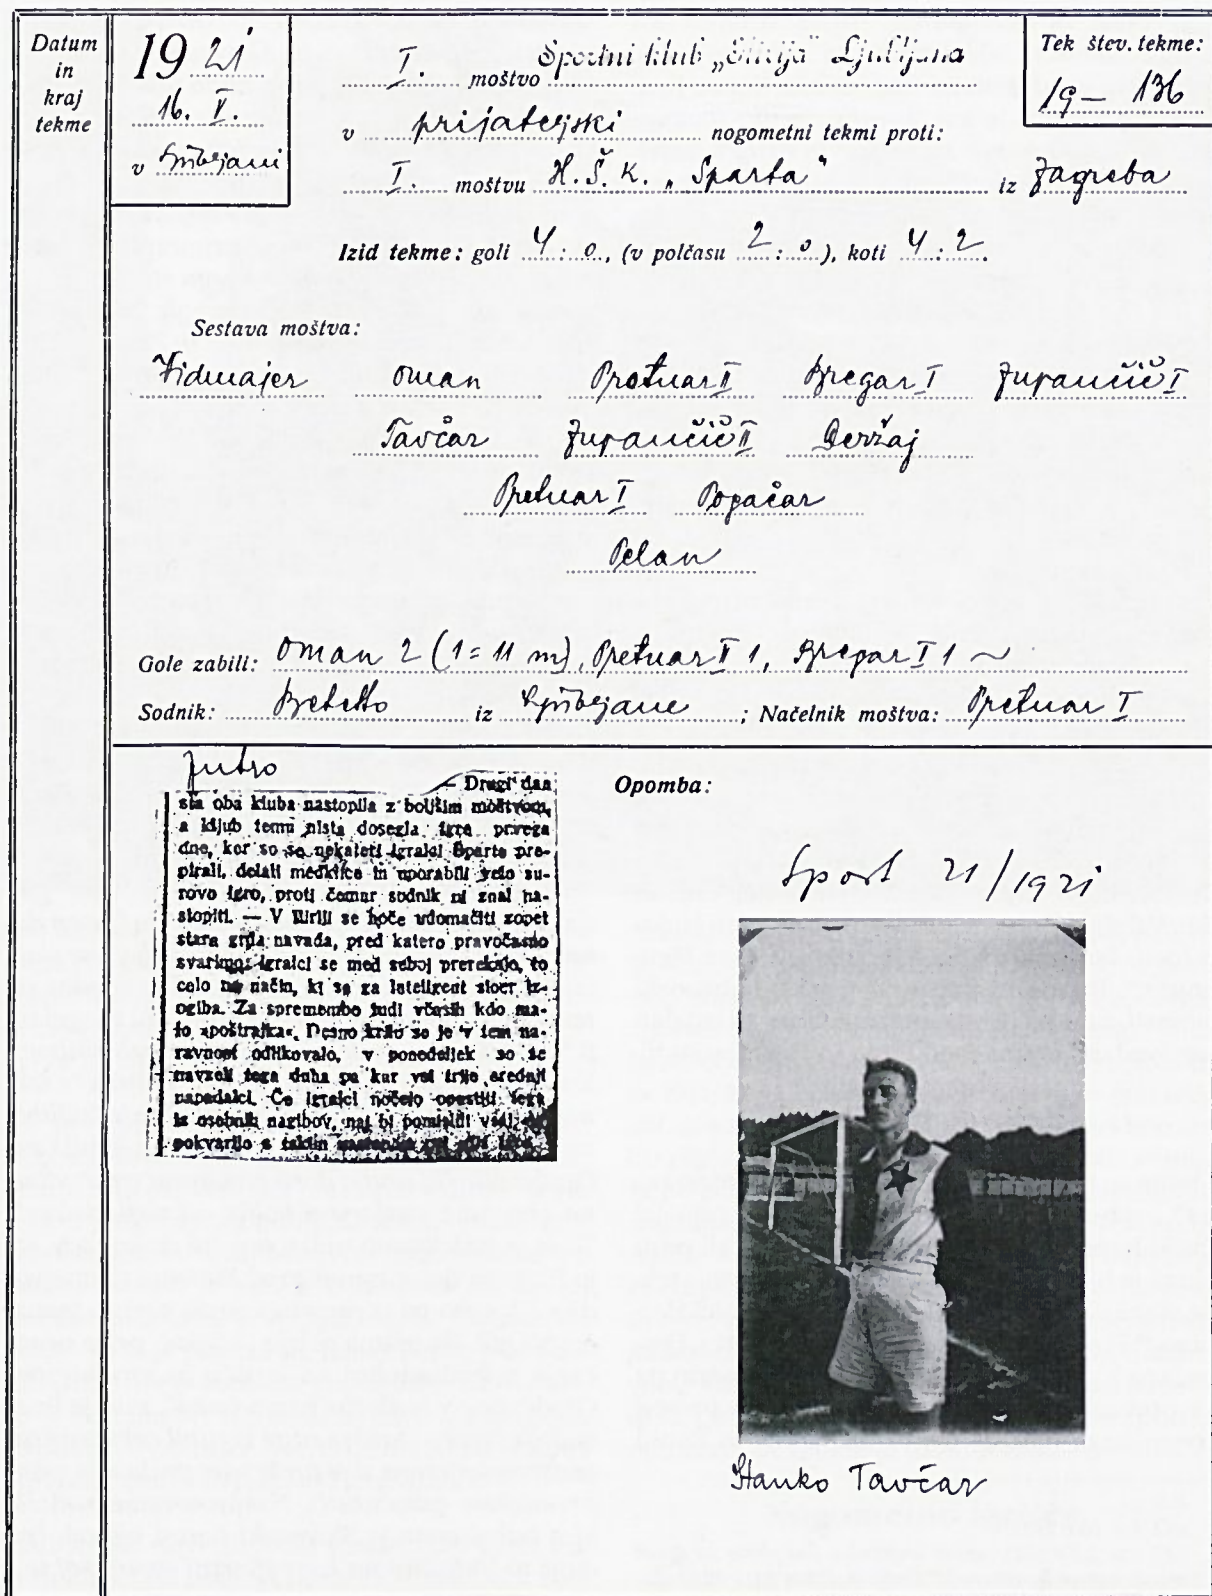 Datum
in
kraj
tekme
1921
16. V.
v Ljubljani
I. moštvo Športni klub „Ilirija“ Ljubljana
v prijateljski nogometni tekmi proti:
I. moštvu H.Š.K. „Sparta“ iz Zagreba
Tek štev. tekme:
19 – 136
Izid tekme: goli 4 : 0, (v polčasu 2 : 0), koti 4 : 2.
Sestava moštva:
Vidmajer Oman Pretnar II Bregar I Zupančič I
Tavčar Zupančič II Deržaj
Pretnar I Pogačar
Pelan
Gole zabili: Oman 2 (1 = 11 m), Pretnar II 1, Bregar I 1 ~
Sodnik: Betetto iz Ljubljane ; Načelnik moštva: Pretnar I
Jutro
— Drugi dan
sta oba kluba nastopila z boljšim moštvom,
a kljub temu nista dosegla igre prvega
dne, ker so se nekateri igralci Sparte pre-
pirali, delali medklice in uporabili zelo su-
rovo igro, proti čemur sodnik ni znal na-
stopiti. — V Iliriji se hoče udomačiti zopet
stara grda navada, pred katero pravočasno
svarimo: igralci se med seboj prerekajo, to
celo na način, ki se ga inteligent sicer iz-
ogiba. Za spremembo tudi včasih kdo ma-
lo »poštrajka«. Desno krilo se je v tem na-
ravnost odlikovalo, v ponedeljek so se
navzeli tega duha pa kar vsi trije srednji
napadalci. Če igralci nočejo opustiti tega
iz osebnih nagibov, naj bi pomislili
pokvarijo s takim
Opomba:
Sport 21/1921
Stanko Tavčar